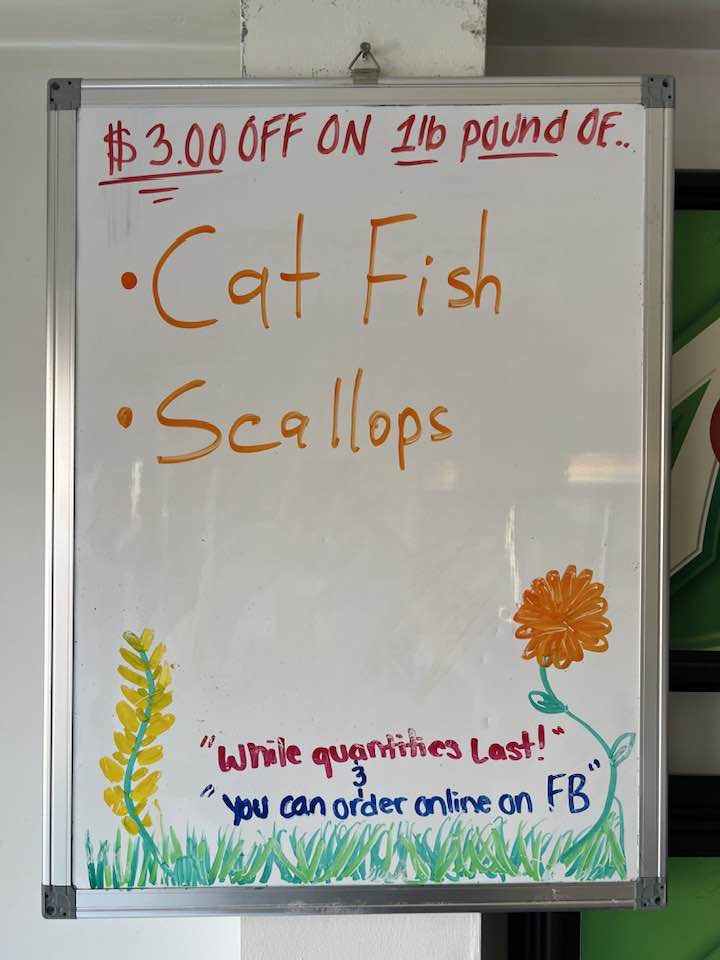 $3.00 OFF ON 1lb pound OF..
• Cat Fish
• Scallops
"While quantities Last!"
3
"You can order online on FB"